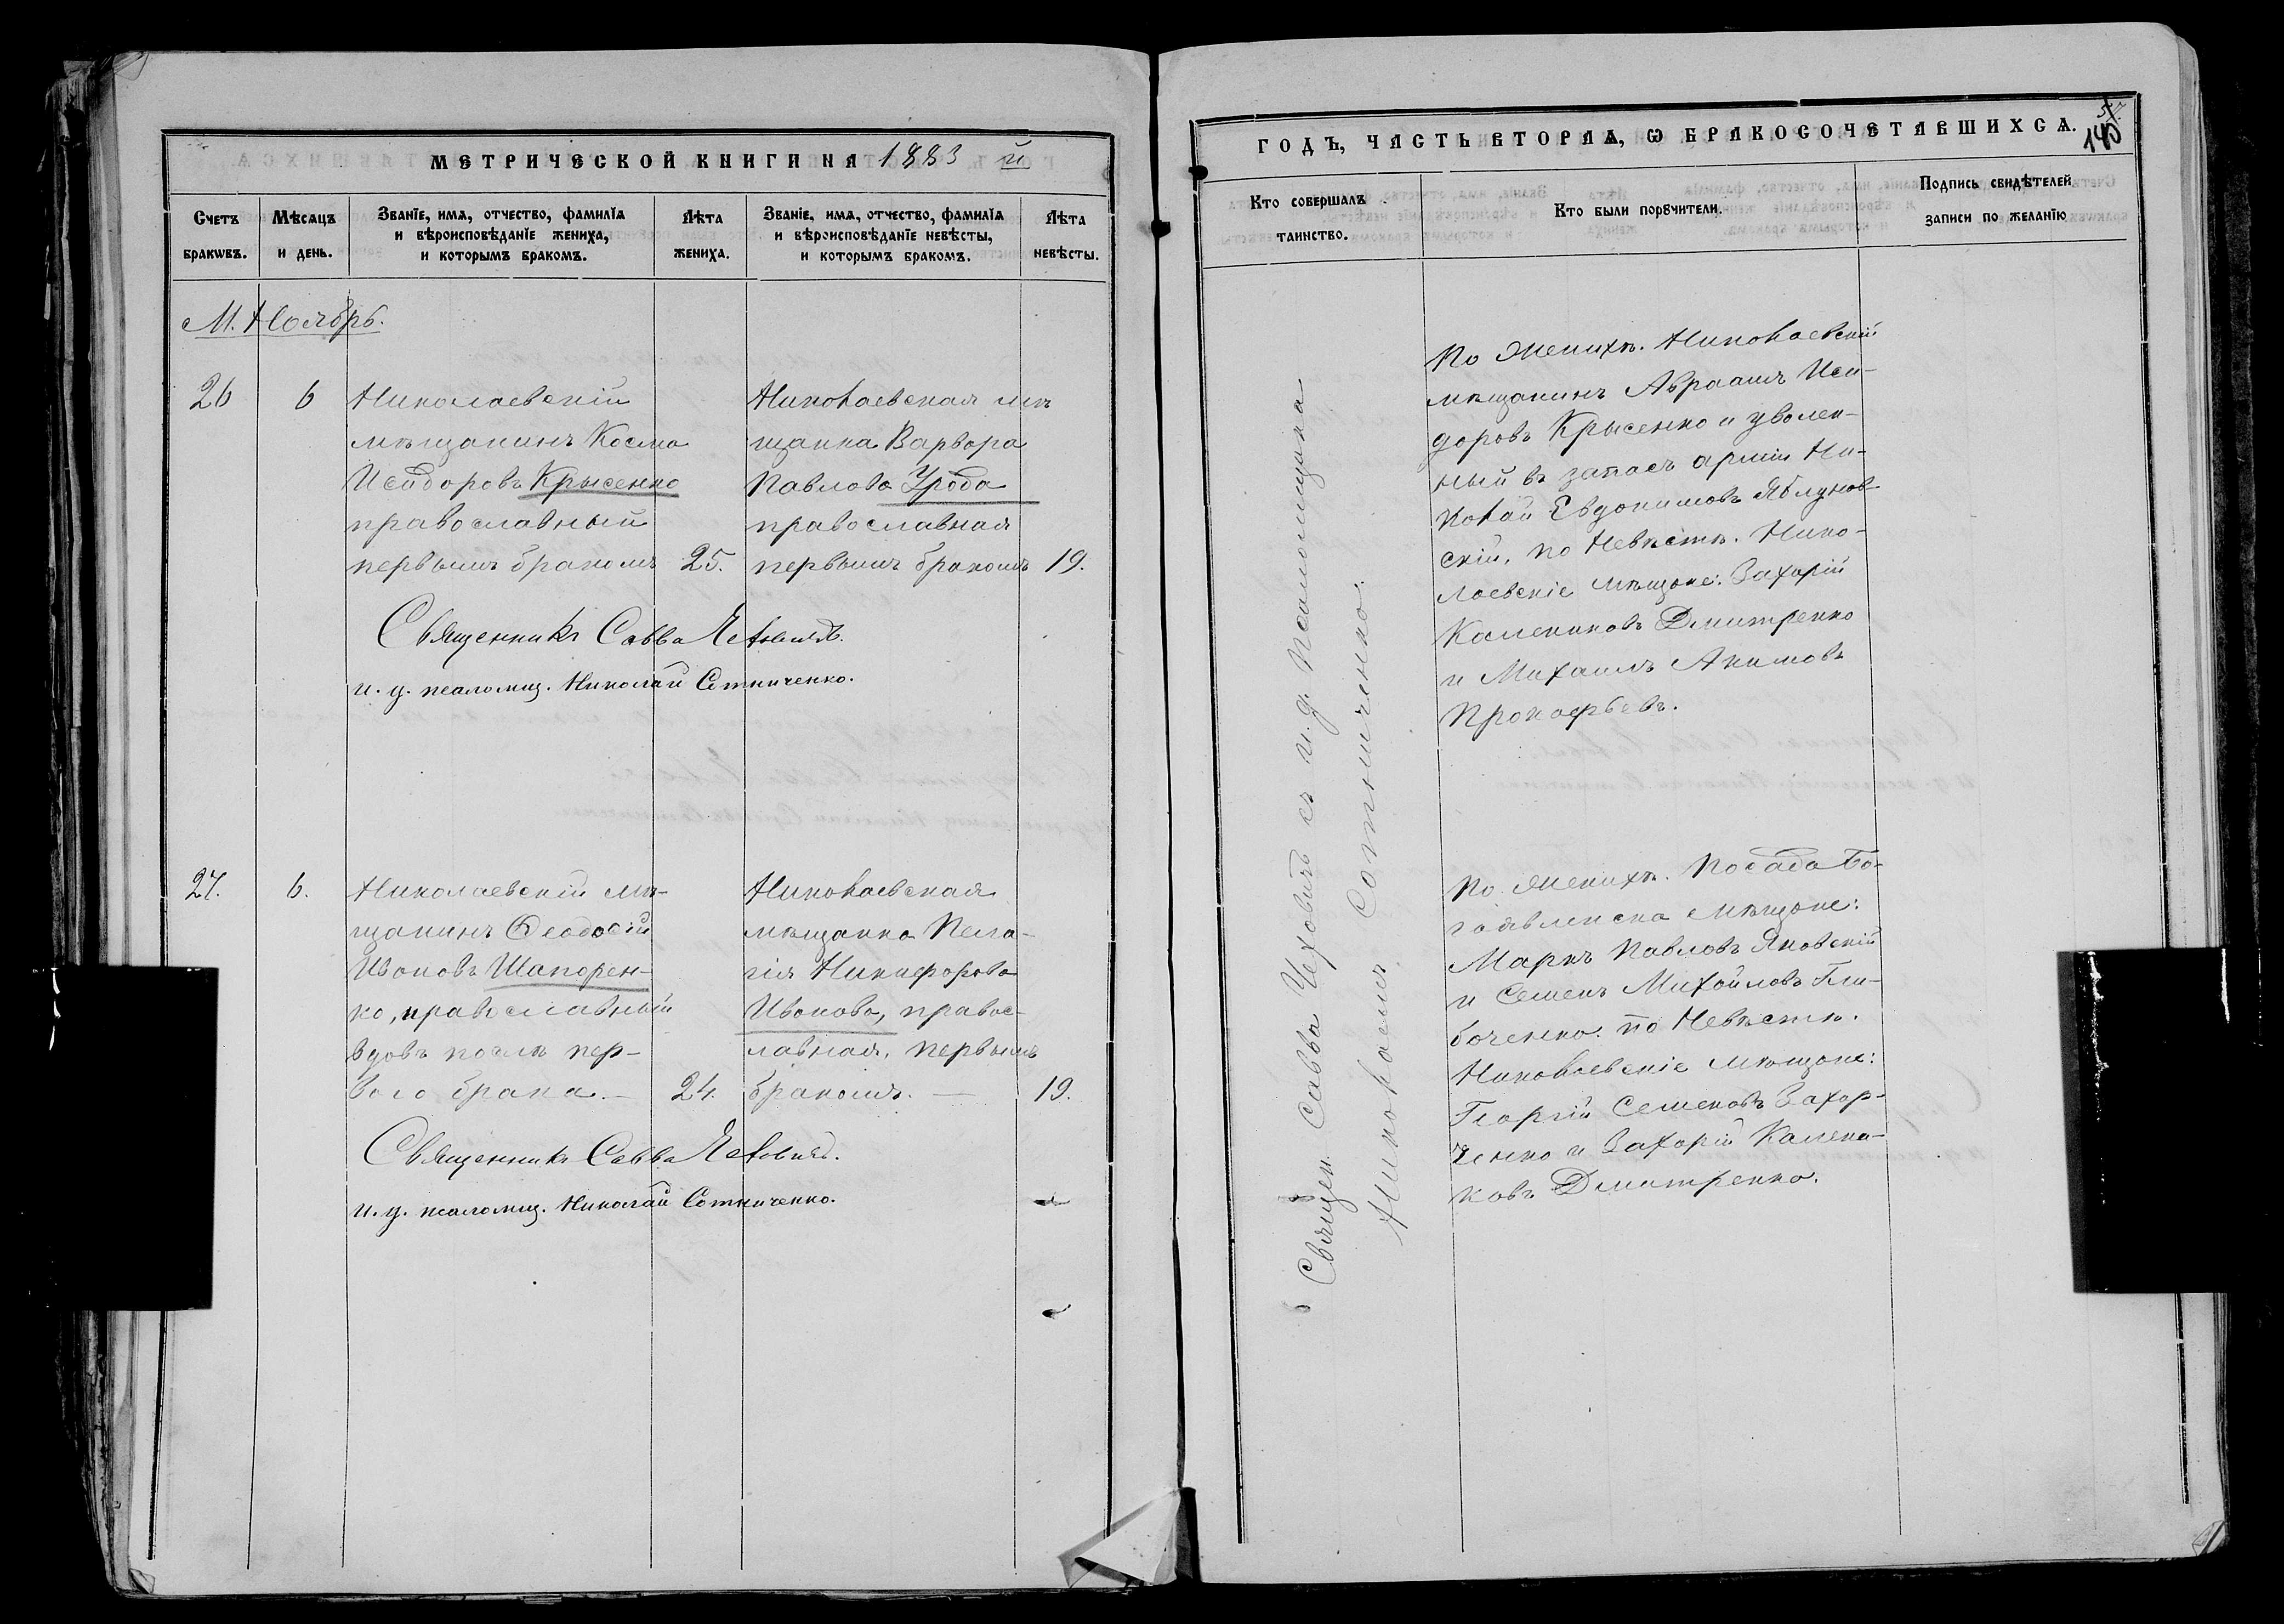 МЕТРИЧЕСКОЙ КНИГИ НА 1883 й
Счетъ браковъ.
Мѣсяцъ и день.
Званїе, имя, отчество, фамилїя и вѣроисповѣданїе жениха, и которымъ бракомъ.
Лѣта жениха.
Званіе, имя, отчество, фамилїя и вѣроисповѣданїе невѣсты, и которымъ бракомъ.
Лѣта невѣсты.
М. Ноябрь.
26
6
Николаевскій
мѣщанинъ Косма
Исидоровъ Крысенко
православный
первымъ бракомъ
25.
Николаевская мѣ
щанка Варвора
Павлова Урода
православная
первымъ бракомъ
19.
Священникъ Савва Чеховичъ.
и. д. псаломщ. Николай Сотниченко.
27.
6.
Николаевскій мѣ-
щанинъ Ѳеодосій
Ивановъ Шапорен-
ко, православный
вдовъ послѣ пер-
ваго брака. —
24.
Николаевская
мѣщанка Пела-
гія Никифорова
Иванова, правос-
лавная, первымъ
бракомъ. —
19.
Священникъ Савва Чеховичъ.
и. д. псаломщ. Николай Сотниченко.
ГОДЪ, ЧАСТЬ ВТОРАѦ, Ѡ БРАКОСОЧЕТАВШИХСѦ.
140
Кто совершалъ таинство.
Кто были порѹчители.
Подпись свидѣтелей записи по желанїю
Священ. Савва Чеховичъ съ и. д. Псаломщика
Николаемъ Сотниченко.
По Женихѣ. Николаевскій
мѣщанинъ Авраамъ Иси-
доровъ Крысенко и уволен-
ный въ запасъ арміи Ни-
колай Евдокимовъ Яблунов-
скій, по Невѣстѣ. Нико-
лаевскіе мѣщане: Захарій
Калениковъ Дмитренко
и Михаилъ Акимовъ
Прокофьевъ.
По Женихѣ. Посада Бо-
гоявленска мѣщане:
Маркъ Павловъ Яновскій
и Семенъ Михайловъ Гли-
боченко. по Невѣстѣ.
Николаевскіе мѣщане:
Георгій Семеновъ Захар-
ченко и Захарій Калени-
ковъ Дмитренко.